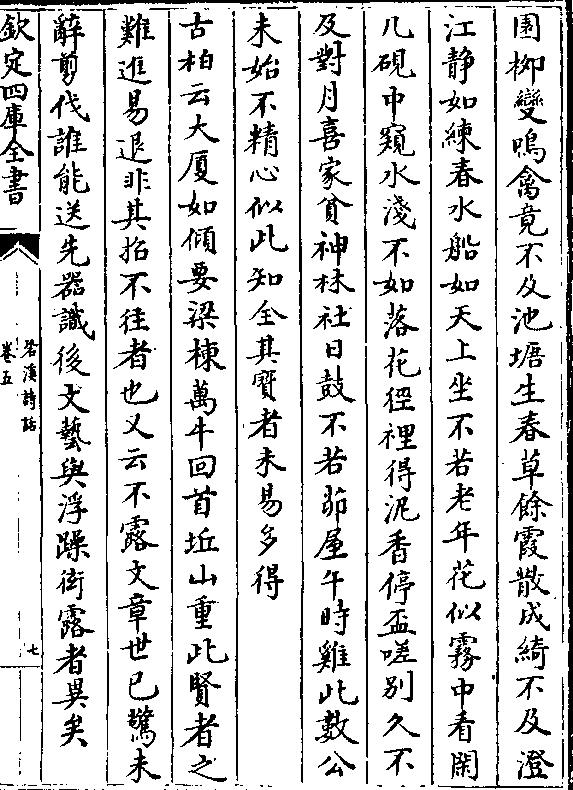 園柳變鳴禽竟不及池塘生春草餘霞散成綺不及澄
江静如練春水船如天上坐不若老年花似霧中看閑
几硯中窺水淺不如落花徑裡得泥香停盃嗟别久不
及對月喜家貧神林社日鼓不若茆屋午時雞此數公
未始不精心似此知全其寳者未易多得
古柏云大厦如傾要梁棟萬牛回首丘山重此賢者之
難進易退非其招不往者也又云不露文章世已驚未
辭剪伐誰能送先器識後文藝與浮躁衒露者異矣
欽定四庫全書
䂬溪詩話
卷五
七